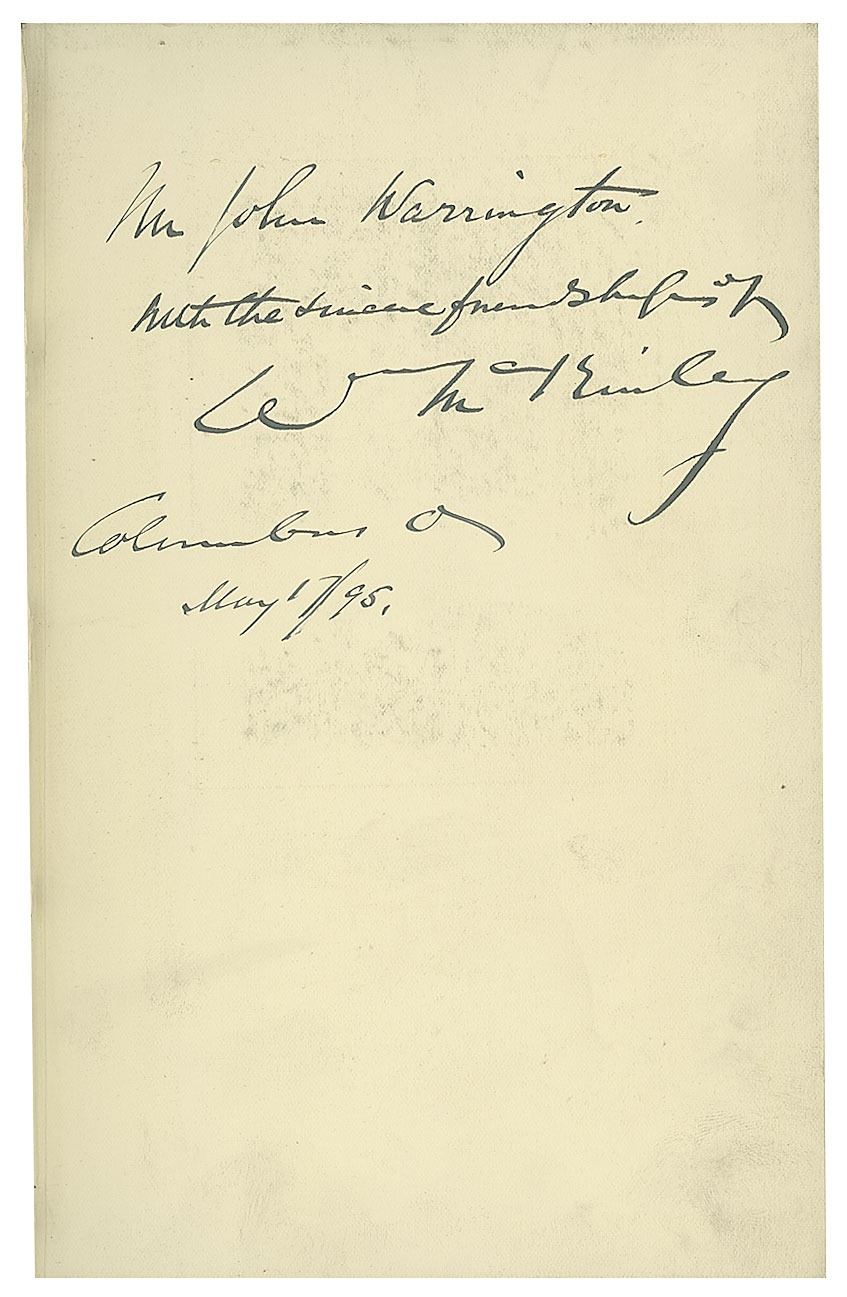 Mr John Warrington.
With the sincere friendship of
Wm McKinley
Columbus O
May 17/95.